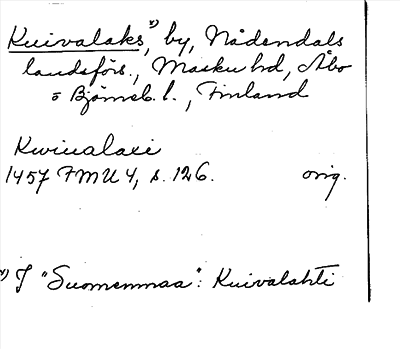 Kuivalaks*), by, Nådendals
landsförs., Masku hd, Åbo
o Björneb. l., Finland
Kwiualaxi
1457 FMU 4, s. 126. orig.
*) I "Suomenmaa": Kuivalahti